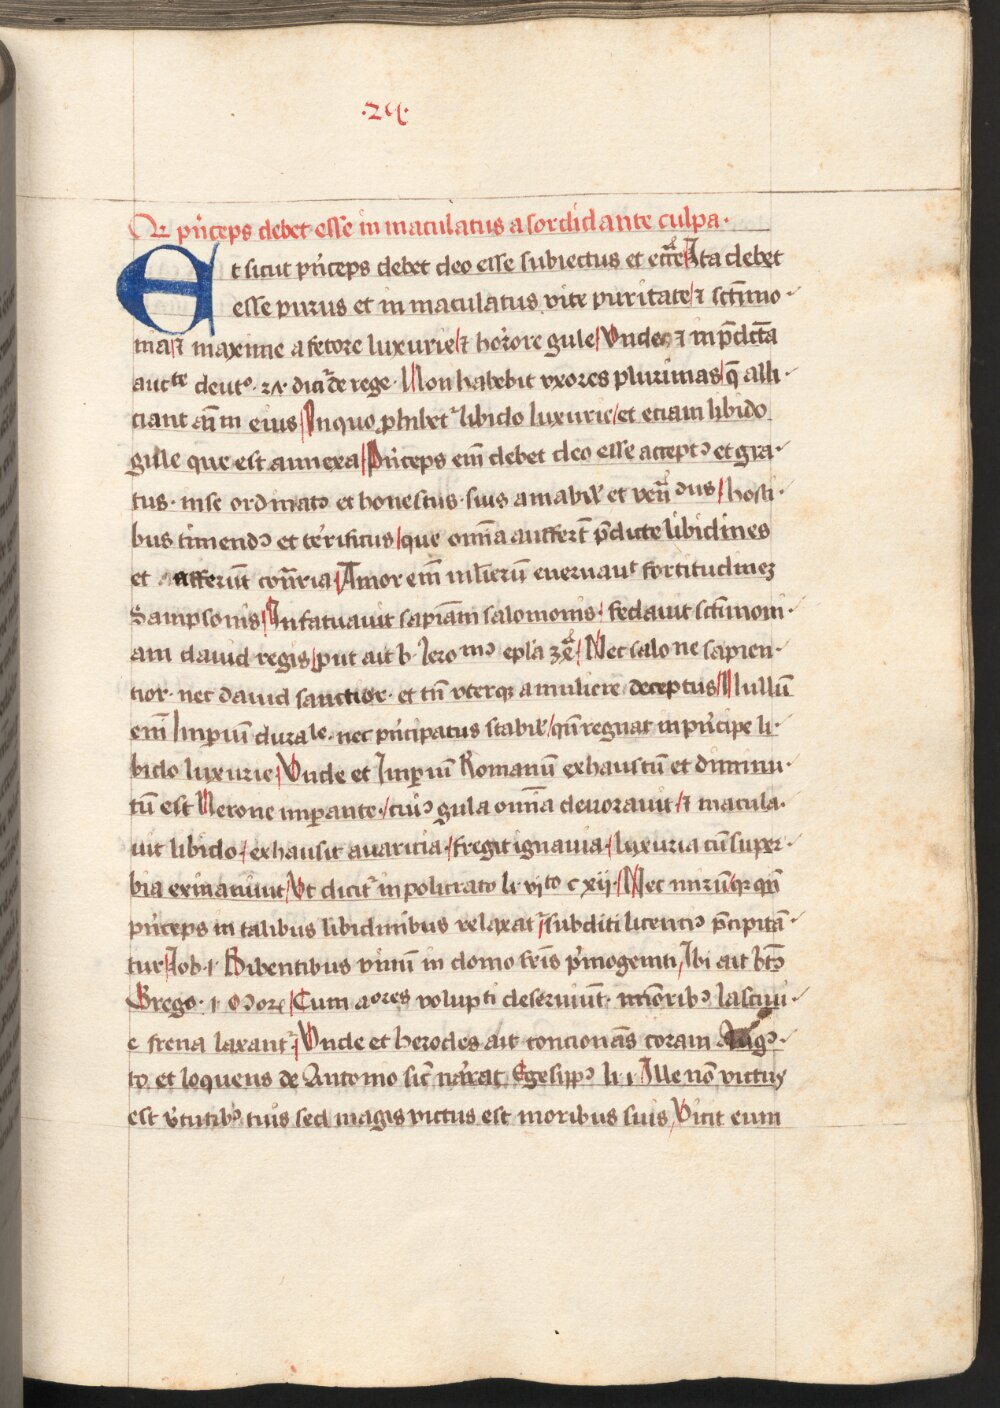 ·24·
Qꝛ pͥnceps debet esse in maculatus a sordidante culpa·
Et sicut pͥnceps debet deo esse subiectus et Ita debet
esse purus et in maculatus vite puritate ⁊ sctīmo
nia ⁊ maxime a fetore luxurie ⁊ horrore gule Unde ⁊ in p̄dcta
aucᵗᵉ deutᵒ· dicit̉ de rege· Non habebit vxores plurimas q̄ alli
ciant aīm eius In quo ꝓhibet̉ libido luxurie et eciam libido
gule que est annexa Pͥnceps em̄ debet deo esse acceptꝰ et gra
tus· in se ordinatꝰ et honestus· suis amabil’ et ven̄dus hosti
bus timendꝰ et terͥficus que omīa auffert̄ p̄dicte libidines
et afferūt con̄ria Amor em̄ mulierū eneruauᵗ fortitudinez
Sampsonis Infatuauit sapiam̄ salomonis· fedauit sctīmoni
am dauid regis put ait b· Ieroᵐꝰ ep̄la Nec salone sapien
tior· nec dauid sanctior· et tn̄ vterqꝫ a muliere deceptus Nullū
em̄ Imꝑiū duraˡᵉ· nec pͥncipatus stabil’ qn̄ regnat in pͥncipe li
bido luxurie Unde et Imꝑiū Romanū exhaustū et diminu
tū est Nerone imꝑante· cuiꝰ gula omīa deuorauit ⁊ macula
uit libido exhausit auaricia fregit ignauia luxuria cū super
bia exinaniuit Ut dicit̉ in policrato li· vjᵗᵒ c xij· Nec mirū qꝛ qn̄
pͥnceps in talibus libidinibus relaxat̉ subditi licenciꝰ p̄cipitā
tur Iob· 1 Bibentibus vinū in domo fr̄is pͥmogeniti Ibi ait btꝰ̄
Grego· 1 Moꝝ Cum aᵒres volupti deseruiūt· mīoribꝰ lasciui
e frena laxant̉ Unde et herodes ait concionās coram Augꝰ
to et loquens de Antonio sic̄ narͣat Egesippꝰ li· 1 Ille nō victus
est v̉tutibꝰ tuis sed magis victus est moribus suis Vicit eum